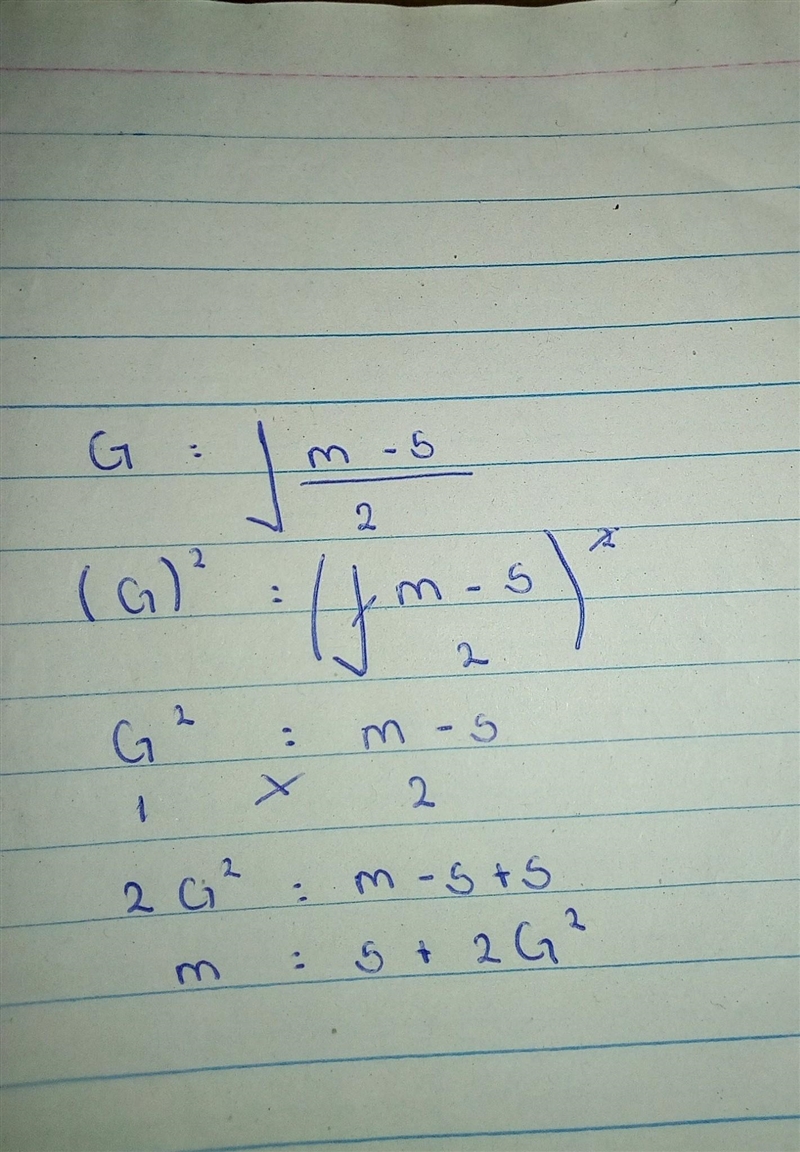 G = √ m - 5
2
(G)² = (√ m - 5)²
2
G² = m - 5
1 × 2
2 G² = m - 5 + 5
m = 5 + 2 G²